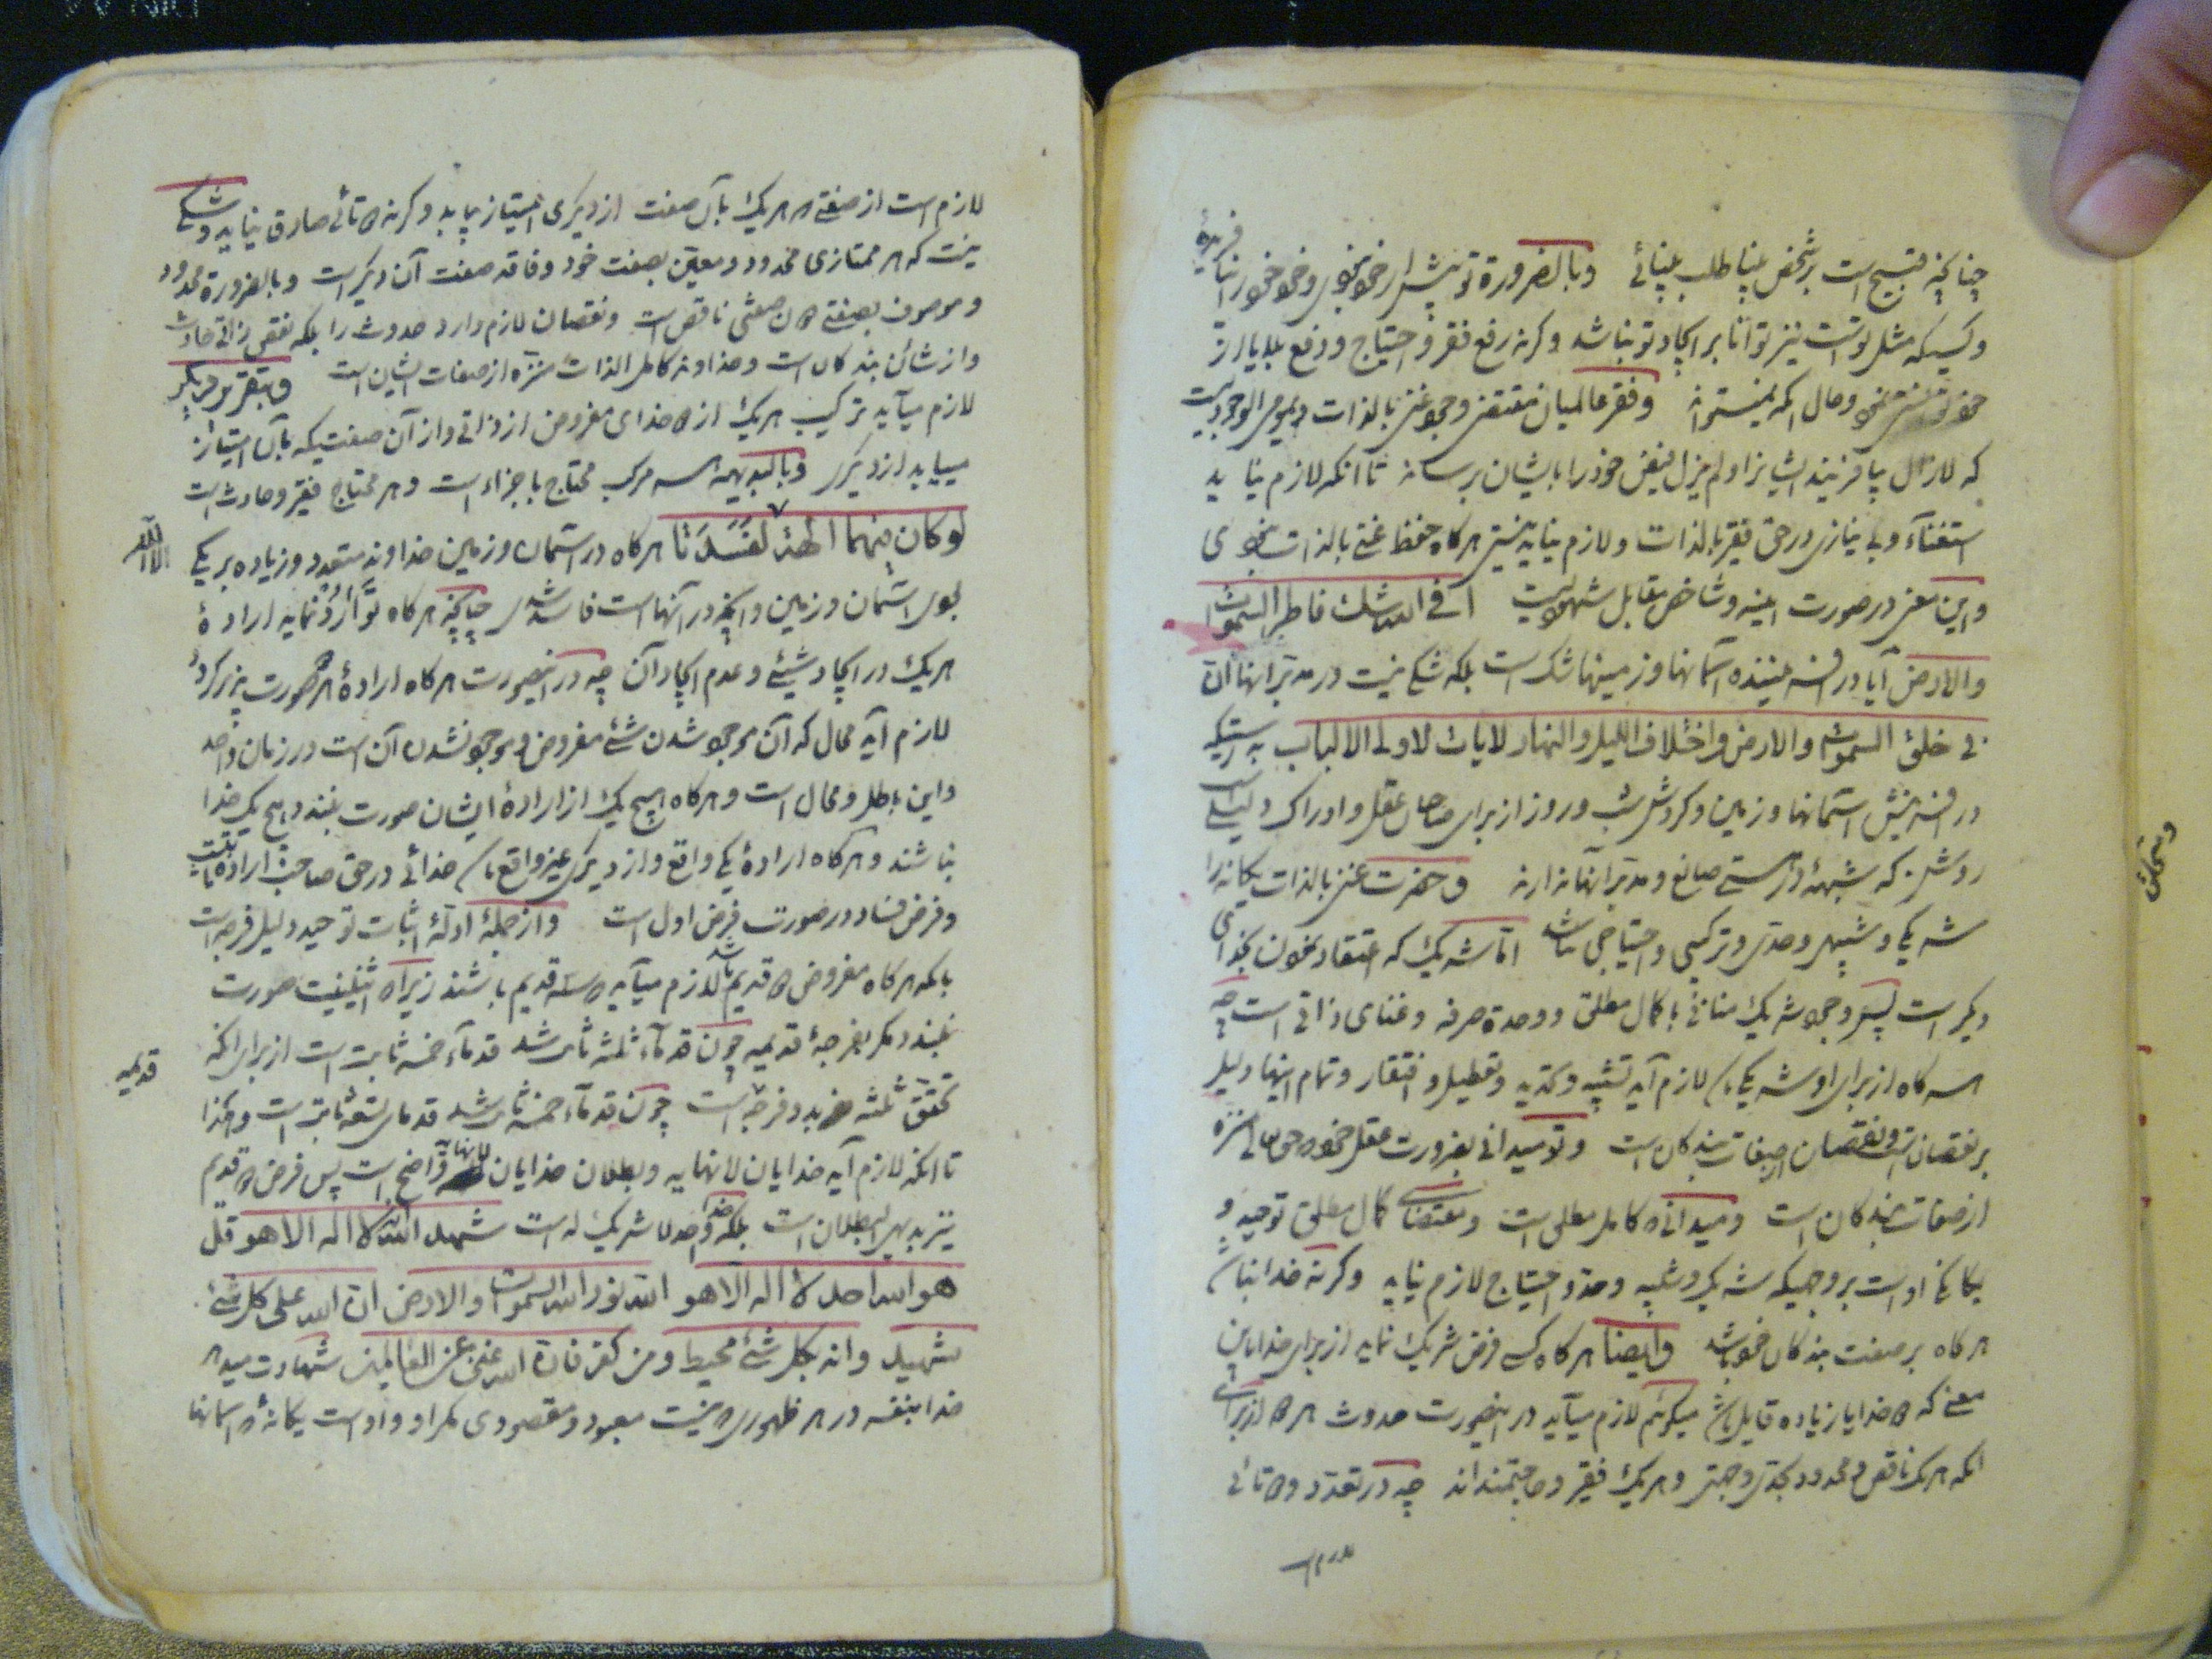 چنانکه قبیح است بر شخص بینا طلب بینائی وبالضرورة تو پیش از خود نبودی وخود خود را نیافریدهٔ
وکسیکه مثل توست نیز توانا بر ایجاد تو نباشد وکرنه رفع فقر واحتیاج ودفع بلایا از
خود وحال آنکه نمیتواند وفقر عالمیان مقتضی وجود غنی بالذات
که لازال بیافریند ایشانرا ولم یزل فیض خود را بایشان برساند تا آنکه لازم نیاید
استغناء وبی نیازی در حق فقیر بالذات ولازم نیاید نیستی هرکاه حفظ غنی بالذات نبودی
واین معنی در صورت آینه وشاخص مقابل مشهود است افی الله شك فاطر السموات
والارض آیا در آفریننده آسمانها وزمینها شک است بلکه شکی نیست در مدبر آنها ان
فی خلق السموات والارض واختلاف اللیل والنهار لایات لاولی الالباب بدرستیکه
در آفرینش آسمانها وزمین وکردش شب وروز از برای صاحبان عقل وادراک دلیلی است
روشن که شبههٔ در هستی صانع ومدبر آنها ندارند وحضرت غنی بالذات یکانه را
شریکی وشبیهی وحدی وترکیبی واحتیاجی نباشد اما شریک که اعتقاد نمودن بخدای
دیکر است پس وجود شریک منافی با کمال مطلق ووحدة صرفه وغنای ذاتی است چه
هرکاه از برای او شریکی باشد لازم آید تشبیه وتحدید وتعطیل وافتقار وتمام اینها دلیل
بر نقصان است ونقصان از صفات بندکان است وتو میدانی بضرورت عقل خود که حق تعالی منزه
از صفات بندکان است ومیدانی که کامل مطلق است ومقتضای کمال مطلق توحید و
یکانکی اوست بر وجهیکه شریک وشبیه وحد واحتیاج لازم نیاید وکرنه خدا نباشد
هرکاه بر صفت بندکان خود باشد وایضا هرکاه کسی فرض شریک نماید از برای خدا باین
معنی که دو خدا یا زیاده قایل باشد میکوئیم لازم میآید در اینصورت حدوث هر دو از برای
آنکه هر یک ناقص ومحدود بحدی وجهتی وهر یک فقیر وحاجتمنداند چه در تعدد دوتائی
لازم است
لازم است از صفتی که هر یک بآن صفت از دیکری امتیاز بیابد وکرنه دوتائی صادق نیاید وشکی
نیست که هر ممتازی محدود ومعین بصفت خود وفاقد صفت آن دیکر است وبالضرورة محدود
وموصوف بصفتی دون صفتی ناقص است ونقصان لازم دارد حدوث را بلکه نقص ذاتی حادث
واز شأن بندکان است وخداوند کامل الذات منزه از صفات ایشان است وبتقریر دیکر
لازم میآید ترکیب هر یک از دو خدای مفروض از ذاتی واز آن صفتیکه بآن امتیاز
میباید از دیکری وبالبدیهه هر مرکب محتاج باجزاء است وهر محتاج فقیر وحادث است
لو کان فیهما الهة لفسدتا هرکاه در آسمان وزمین خداوند متعدد وزیاده بر یکی
الا الله
بودی آسمان وزمین وآنچه در آنهاست فاسد شدی چنانچه هرکاه توارد نماید ارادهٔ
هر یک در ایجاد شیئی وعدم ایجاد آن چه در اینصورت هرکاه ارادهٔ هر دو صورت پذیر کردد
لازم آید محال که آن موجود شدن شئ مفروض وموجود نشدن آن است در زمان واحد
واین باطل ومحال است وهرکاه هیچ یک از ارادهٔ ایشان صورت نبندد هیچ یک خدا
نباشند وهرکاه ارادهٔ یکی واقع واز دیکری غیر واقع باشد خدائی در حق صاحب ارادهٔ ثابت
وفرض فساد در صورت فرض اول است واز جملهٔ ادلهٔ اثبات توحید دلیل فرجه است
بآنکه هرکاه مفروض دو قدیم باشد لازم میآید که سه قدیم باشند زیرا که اثنینیت صورت
نبندد مکر بفرجهٔ قدیمیه چون قدماء ثلثه ثابت شد قدماء خمسه ثابت است از برای آنکه
قدیمیه
تحقق ثلثه بدو فرجه است چون قدماء خمسه ثابت شد قدمای تسعه ثابت است وهکذا
تا آنکه لازم آید خدایان لانهایه وبطلان خدایان لانهایه واضح است پس فرض دو قدیم
نیز بدیهی البطلان است بلکه خدا واحد لا شریک له است شهد الله انه لا اله الا هو قل
هو الله احد لا اله الا هو الله نور السموات والارض ان الله علی کل شئ
شهید وانه بکل شئ محیط ومن کفر فان الله غنی عن العالمین شهادت میدهد
خدا بنفسه در هر ظهوری که نیست معبود ومقصودی مکر او واوست یکانهٔ که آسمانها